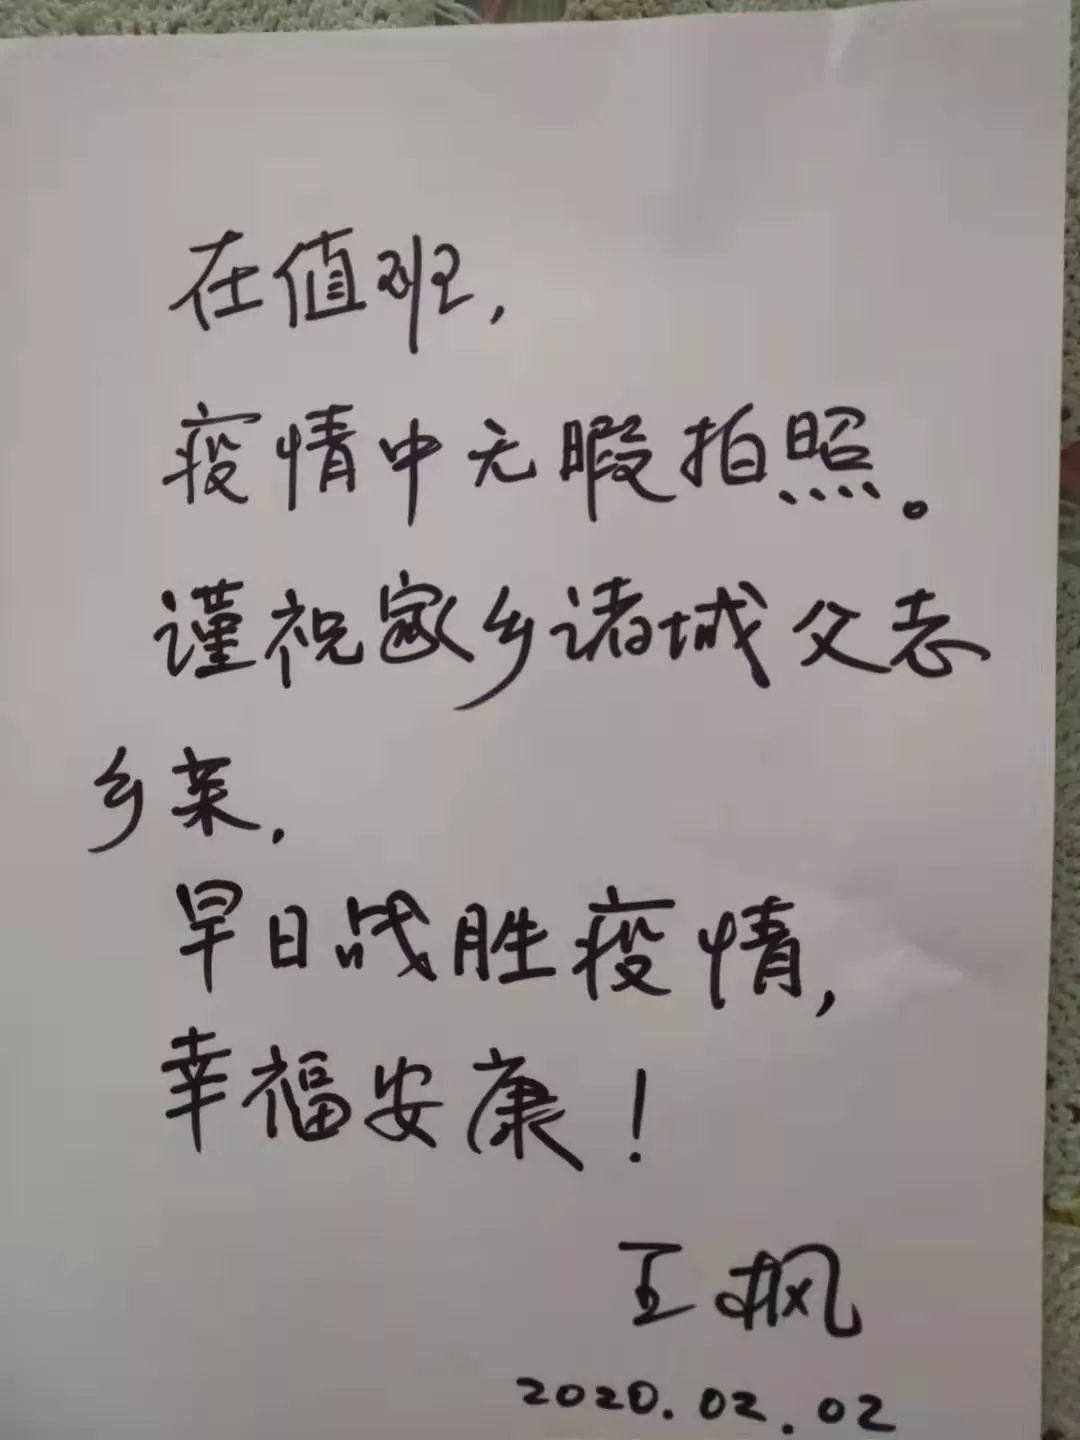 在值班,
疫情中无暇拍照。
谨祝家乡诸城父老
乡亲.
早日战胜疫情,
幸福安康!
王枫
2020.02.02